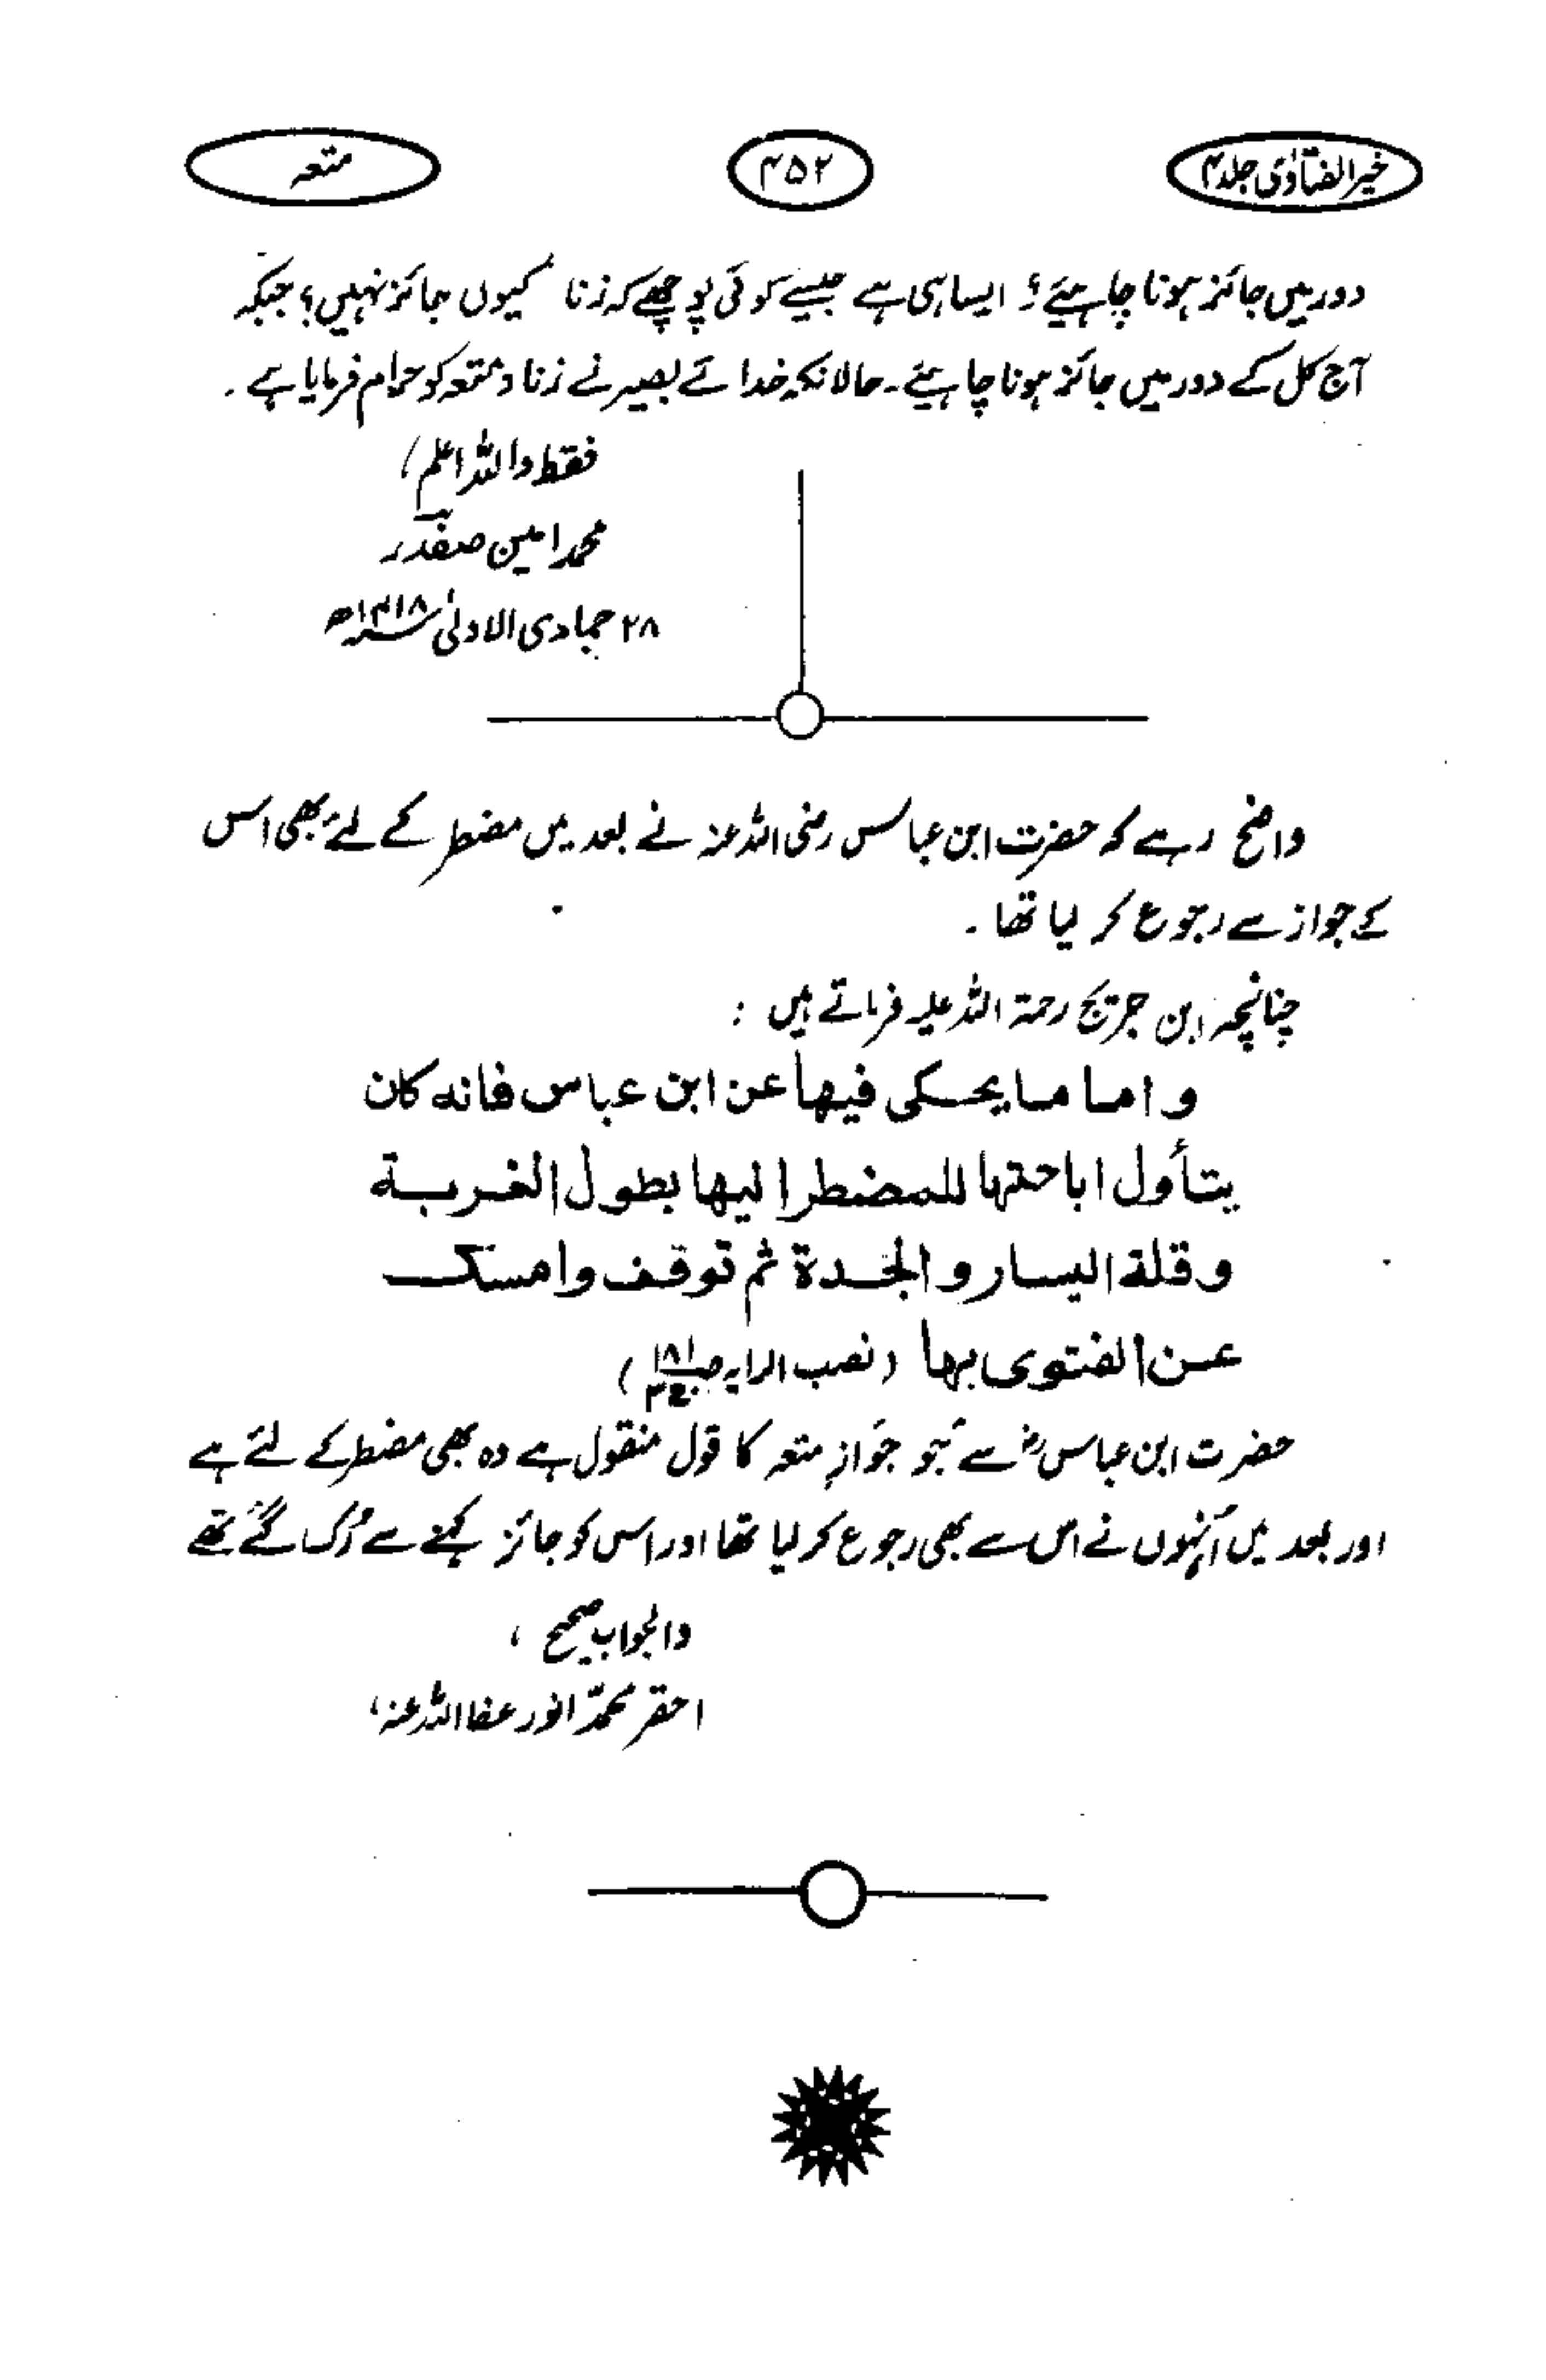 خیر الفتاوٰی جلد ۴
۴۵۲
متعہ
دور میں جائز ہونا چاہیئے؟ ایسا ہی ہے جیسے کوئی پوچھے کہ زنا کیوں جائز نہیں؟ جبکہ
آج کل کے دور میں جائز ہونا چاہیئے۔ حالانکہ خدائے بصیر نے زنا و متعہ کو حرام فرمایا ہے۔
فقط واللہ اعلم،
محمد امین صفدر
۲۸ جمادی الاولیٰ ۱۴۱۸ھ
واضح رہے کہ حضرت ابن عباس رضی اللہ عنہ نے بعد میں مضطر کے لئے بھی اس
کے جواز سے رجوع کر لیا تھا۔
چنانچہ ابن جریج رحمۃ اللہ علیہ فرماتے ہیں :
و اما ما يحكى فيها عن ابن عباس فانه كان
يتأول اباحتها للمضطر اليها بطول الغربة
و قلة اليسار و الجدة ثم توقف وامسك
عن الفتوى بها (نصب الرایہ ص۱۸۱ ج۳)
حضرت ابن عباسؓ سے جو جوازِ متعہ کا قول منقول ہے وہ بھی مضطر کے لئے ہے
اور بعد میں اُنہوں نے اس سے بھی رجوع کر لیا تھا اور اس کو جائز کہنے سے رُک گئے تھے
والجواب صحیح ،
احقر محمد انور عفا اللہ عنہ،